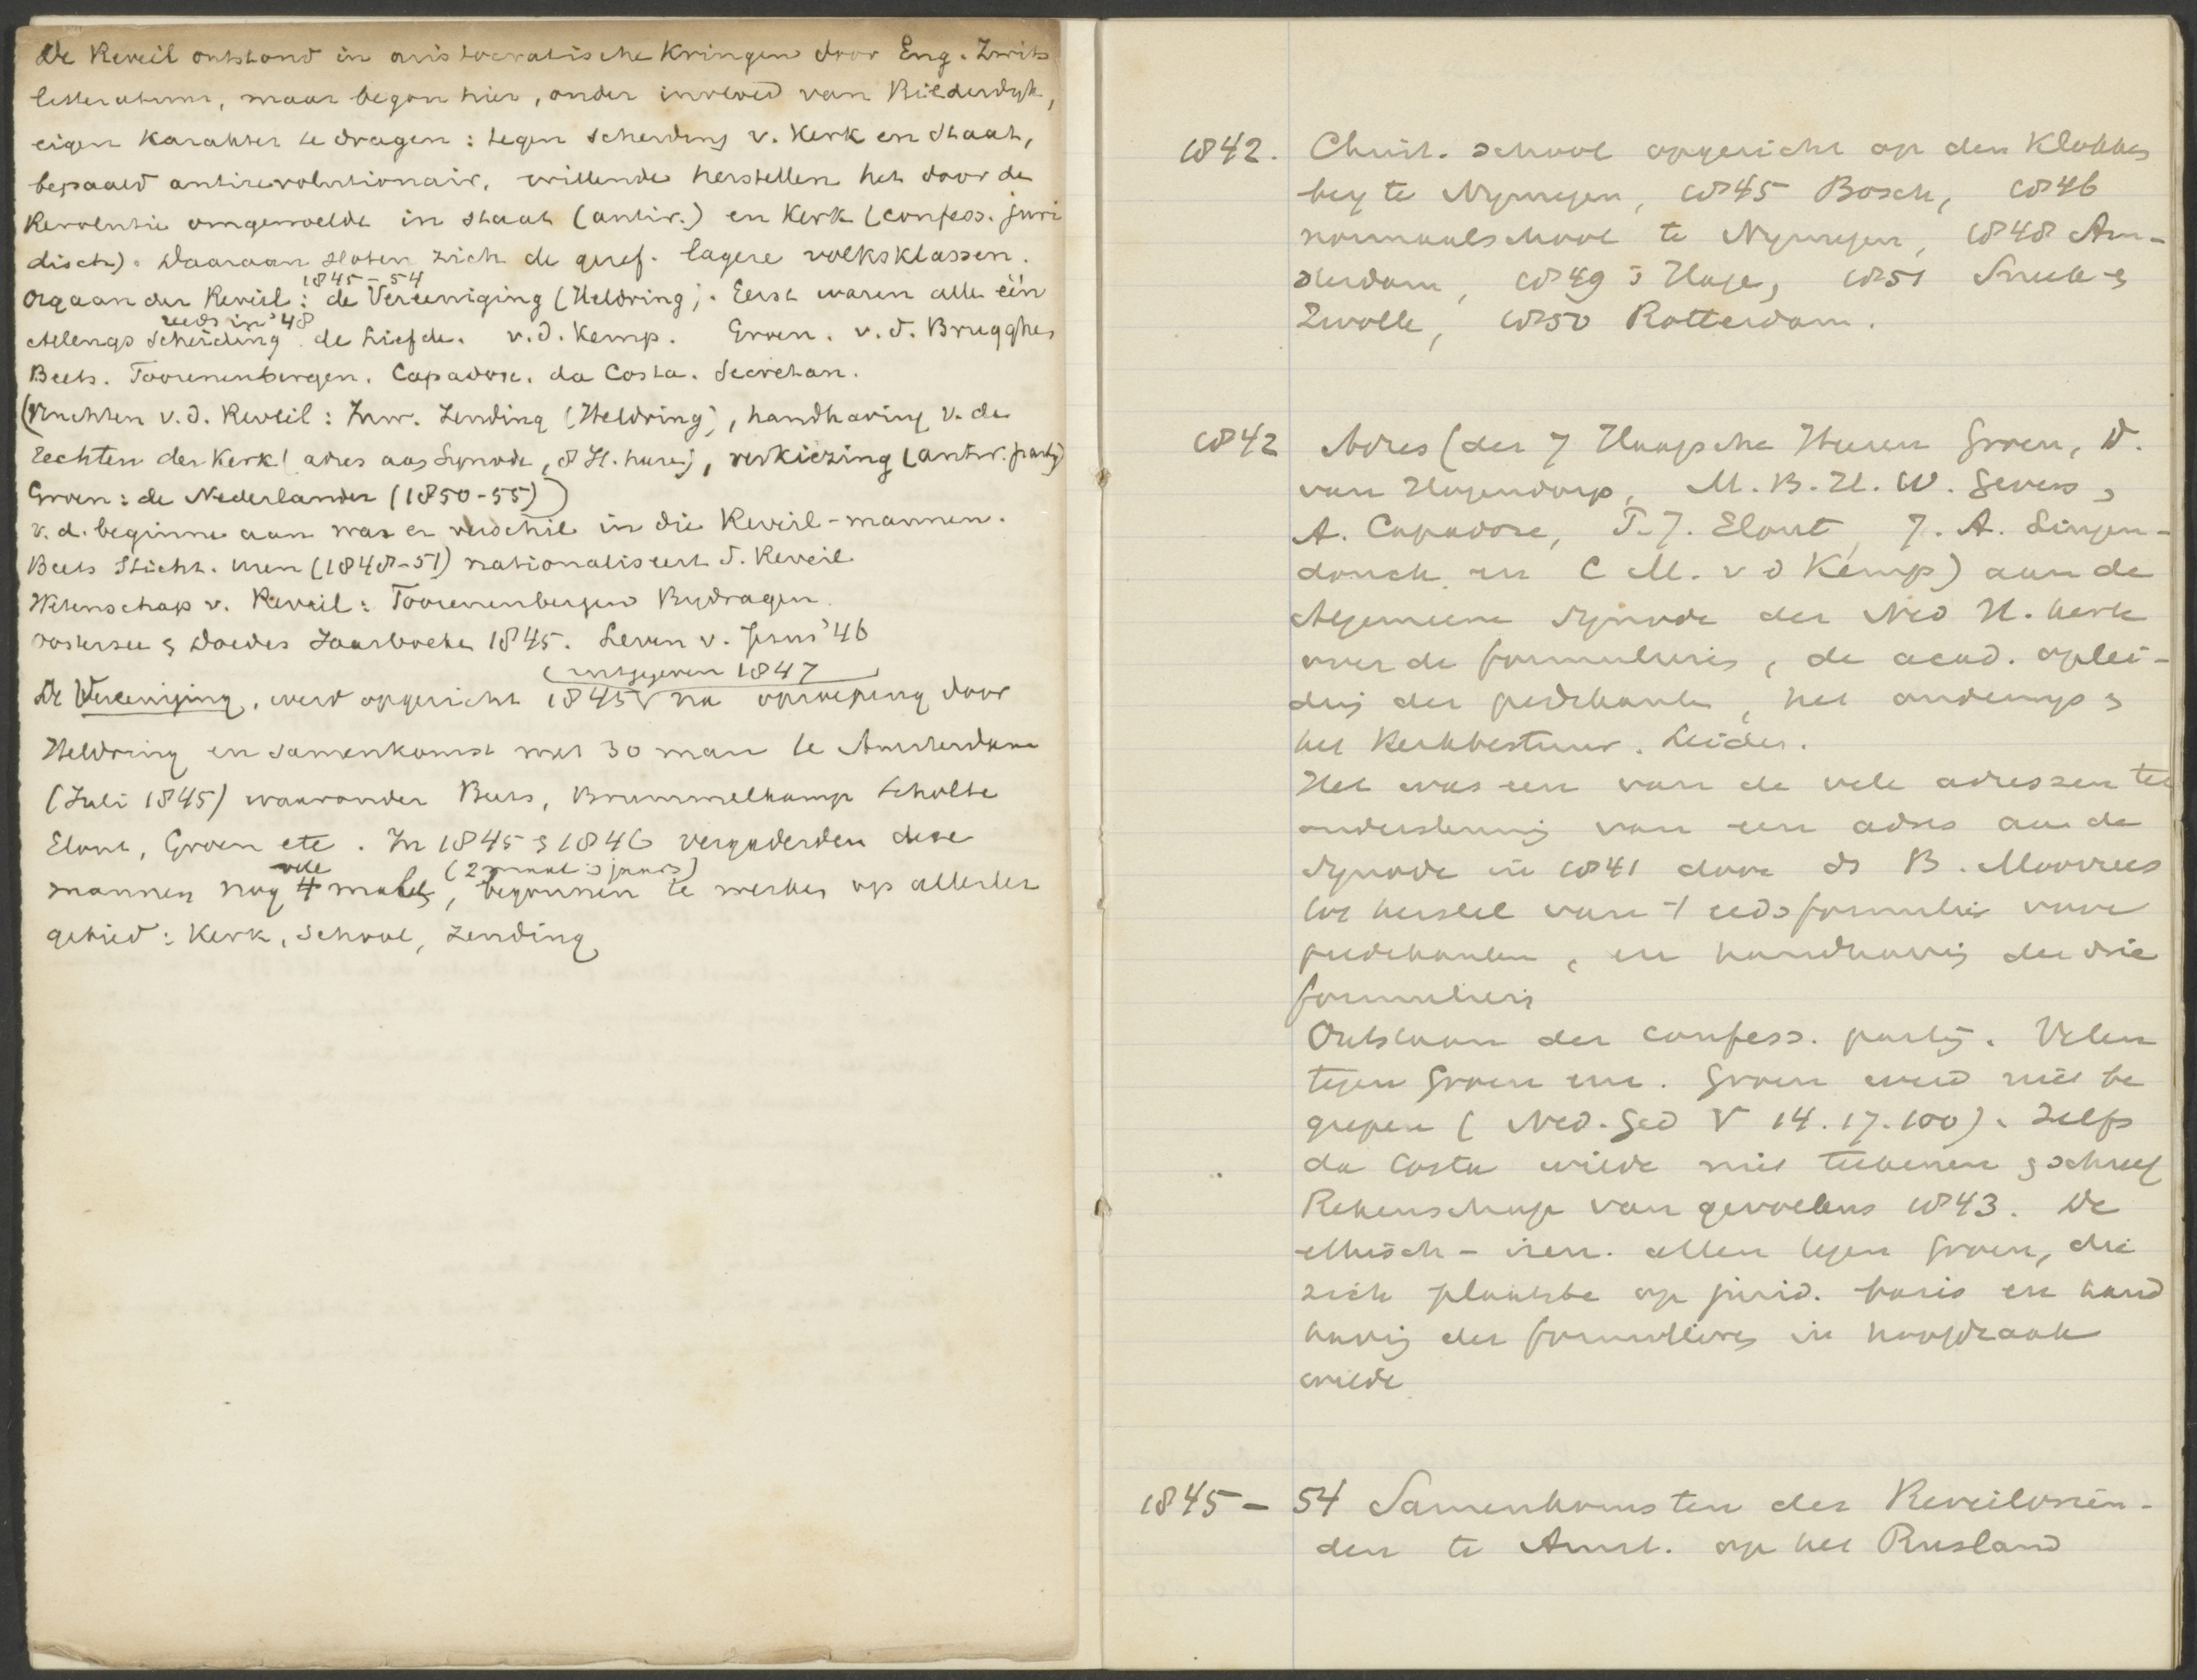 De Reveil ontstond in aristocratische Kringen door Eng. Zwits
litteratuur, maar begon hier, onder invloed van Bilderdyk,
eigen Karakter te dragen: tegen scheiding v. Kerk en Staat,
bepaald antirevolutionair, willende herstellen het door de
Revolutie omgewoelde in staat (antir.) en Kerk (confess. juri
disch). Daaraan sloten zich de geref. lagere volksklassen.
1845-54
Orgaan der Reveil: de Vereeniging (Heldring). Eerst waren alle één
reeds in '48
Allengs scheiding. de Liefde. v.d. Kemp. Groen. v.d. Brugghen
Beets. Toorenenbergen. Capadose. da Costa. Secretan.
(Vruchten v.d. Reveil: Inw. Zending (Heldring), handhaving v. de
rechten der Kerk( adres aan Synode, 8 H. heren), verkiezing (antir. party)
Groen: de Nederlander (1850-55))
v. d. beginne aan was er verschil in die Reveil-mannen.
Beets Sticht. Uren (1848-51) nationaliseert d. Reveil
Wetenschap v. Reveil: Toorenenbergen Bydragen.
Oosterzee & Doedes Jaarboeken 1845. Leven v. Jezus '46
(uitgegeven 1847
De Vereeniging, werd opgericht 1845 na oproeping door
Heldring en samenkomst met 30 man te Amsterdam
(Juli 1845) waaronder Beets, Brummelkamp Scholte
Elout, Groen etc. In 1845 & 1846 vergaderden deze
vele (2 maal 's jaars)
mannen nog 4 malen, begonnen te werken op allerlei
gebied: Kerk, School, Zending
1842. Christ. school opgericht op den Klokken
berg te Nymegen, 1845 Bosch, 1846
normaalschool te Nymegen, 1848 Am-
sterdam, 1849 's Hage, 1851 Sneek &
Zwolle, 1850 Rotterdam.
1842 Adres (der 7 Haagsche Heeren Groen, D.
van Hogendorp, M.B.H.W. Gevers,
A. Capadose, P.J. Elout, J. A. Singen-
donck en C M. v d Kemp) aan de
Algemeene Synode der Ned H. Kerk
over de formulieren, de acad. oplei-
ding der predikanten, het onderwijs &
het Kerkbestuur. Leider.
Het was een van de vele adressen ter
ondersteuning van een adres aan de
Synode in 1841 door ds B. Moorrees
tot herstel van 't eedsformulier voor
predikanten, en handhaving der drie
formulieren
Ontstaan der confess. partij. Velen
tegen Groen enz. Groen werd niet be
grepen (Ned. Ged V 14.17.100). Zelfs
da Costa wilde niet teekenen & schreef
Rekenschap van gevoelens 1843. De
ethisch-iren. allen tegen Groen, die
zich plaatste op jurid. basis en hand
having der formulieren in hoofdzaak
wilde
1845- 54 Samenkomsten der Reveilvrien-
den te Amst. op het Rusland